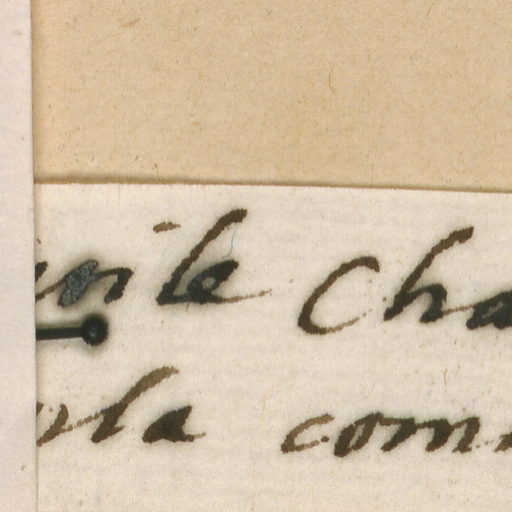 ile Cha
la com